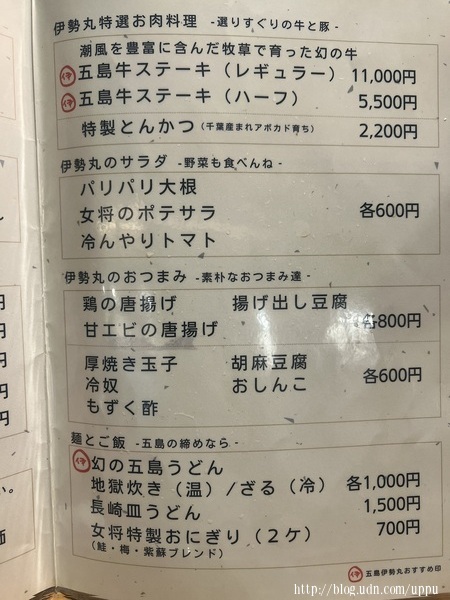 伊勢丸特選お肉料理 -選りすぐりの牛と豚-
潮風を豊富に含んだ牧草で育った幻の牛
五島牛ステーキ（レギュラー） 11,000円
五島牛ステーキ（ハーフ） 5,500円
特製とんかつ（千葉産まれアボカド育ち） 2,200円
伊勢丸のサラダ -野菜も食べんね-
パリパリ大根
女将のポテサラ 各600円
冷んやりトマト
伊勢丸のおつまみ -素朴なおつまみ達-
鶏の唐揚げ 揚げ出し豆腐
甘エビの唐揚げ 各800円
厚焼き玉子 胡麻豆腐
冷奴 おしんこ 各600円
もずく酢
麺とご飯 -五島の締めなら-
幻の五島うどん
地獄炊き（温）/ざる（冷） 各1,000円
長崎皿うどん 1,500円
女将特製おにぎり（２ケ） 700円
（鮭・梅・紫蘇ブレンド）
五島伊勢丸おすすめ印
http://blog.udn.com/uppu